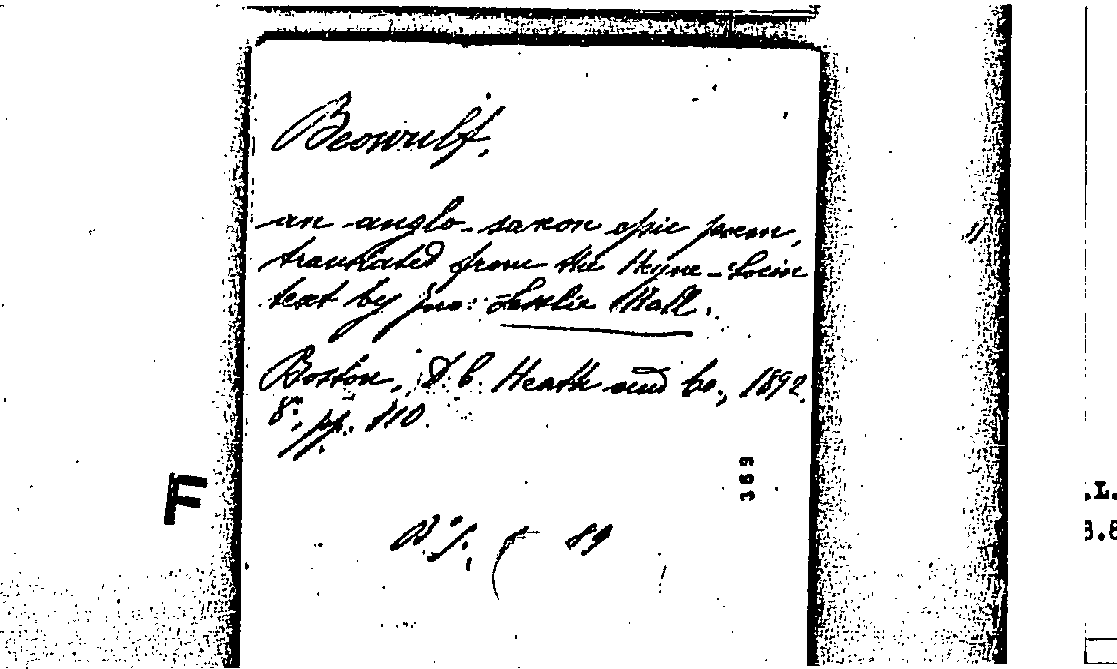 Beowulf.
an anglo-saxon epic poem,
translated from the Heyne-Socin
text by Jno: Lesslie Hall.
Boston, D. C. Heath and Co., 1892.
8º, pp. 110.
369
F
89
.L.